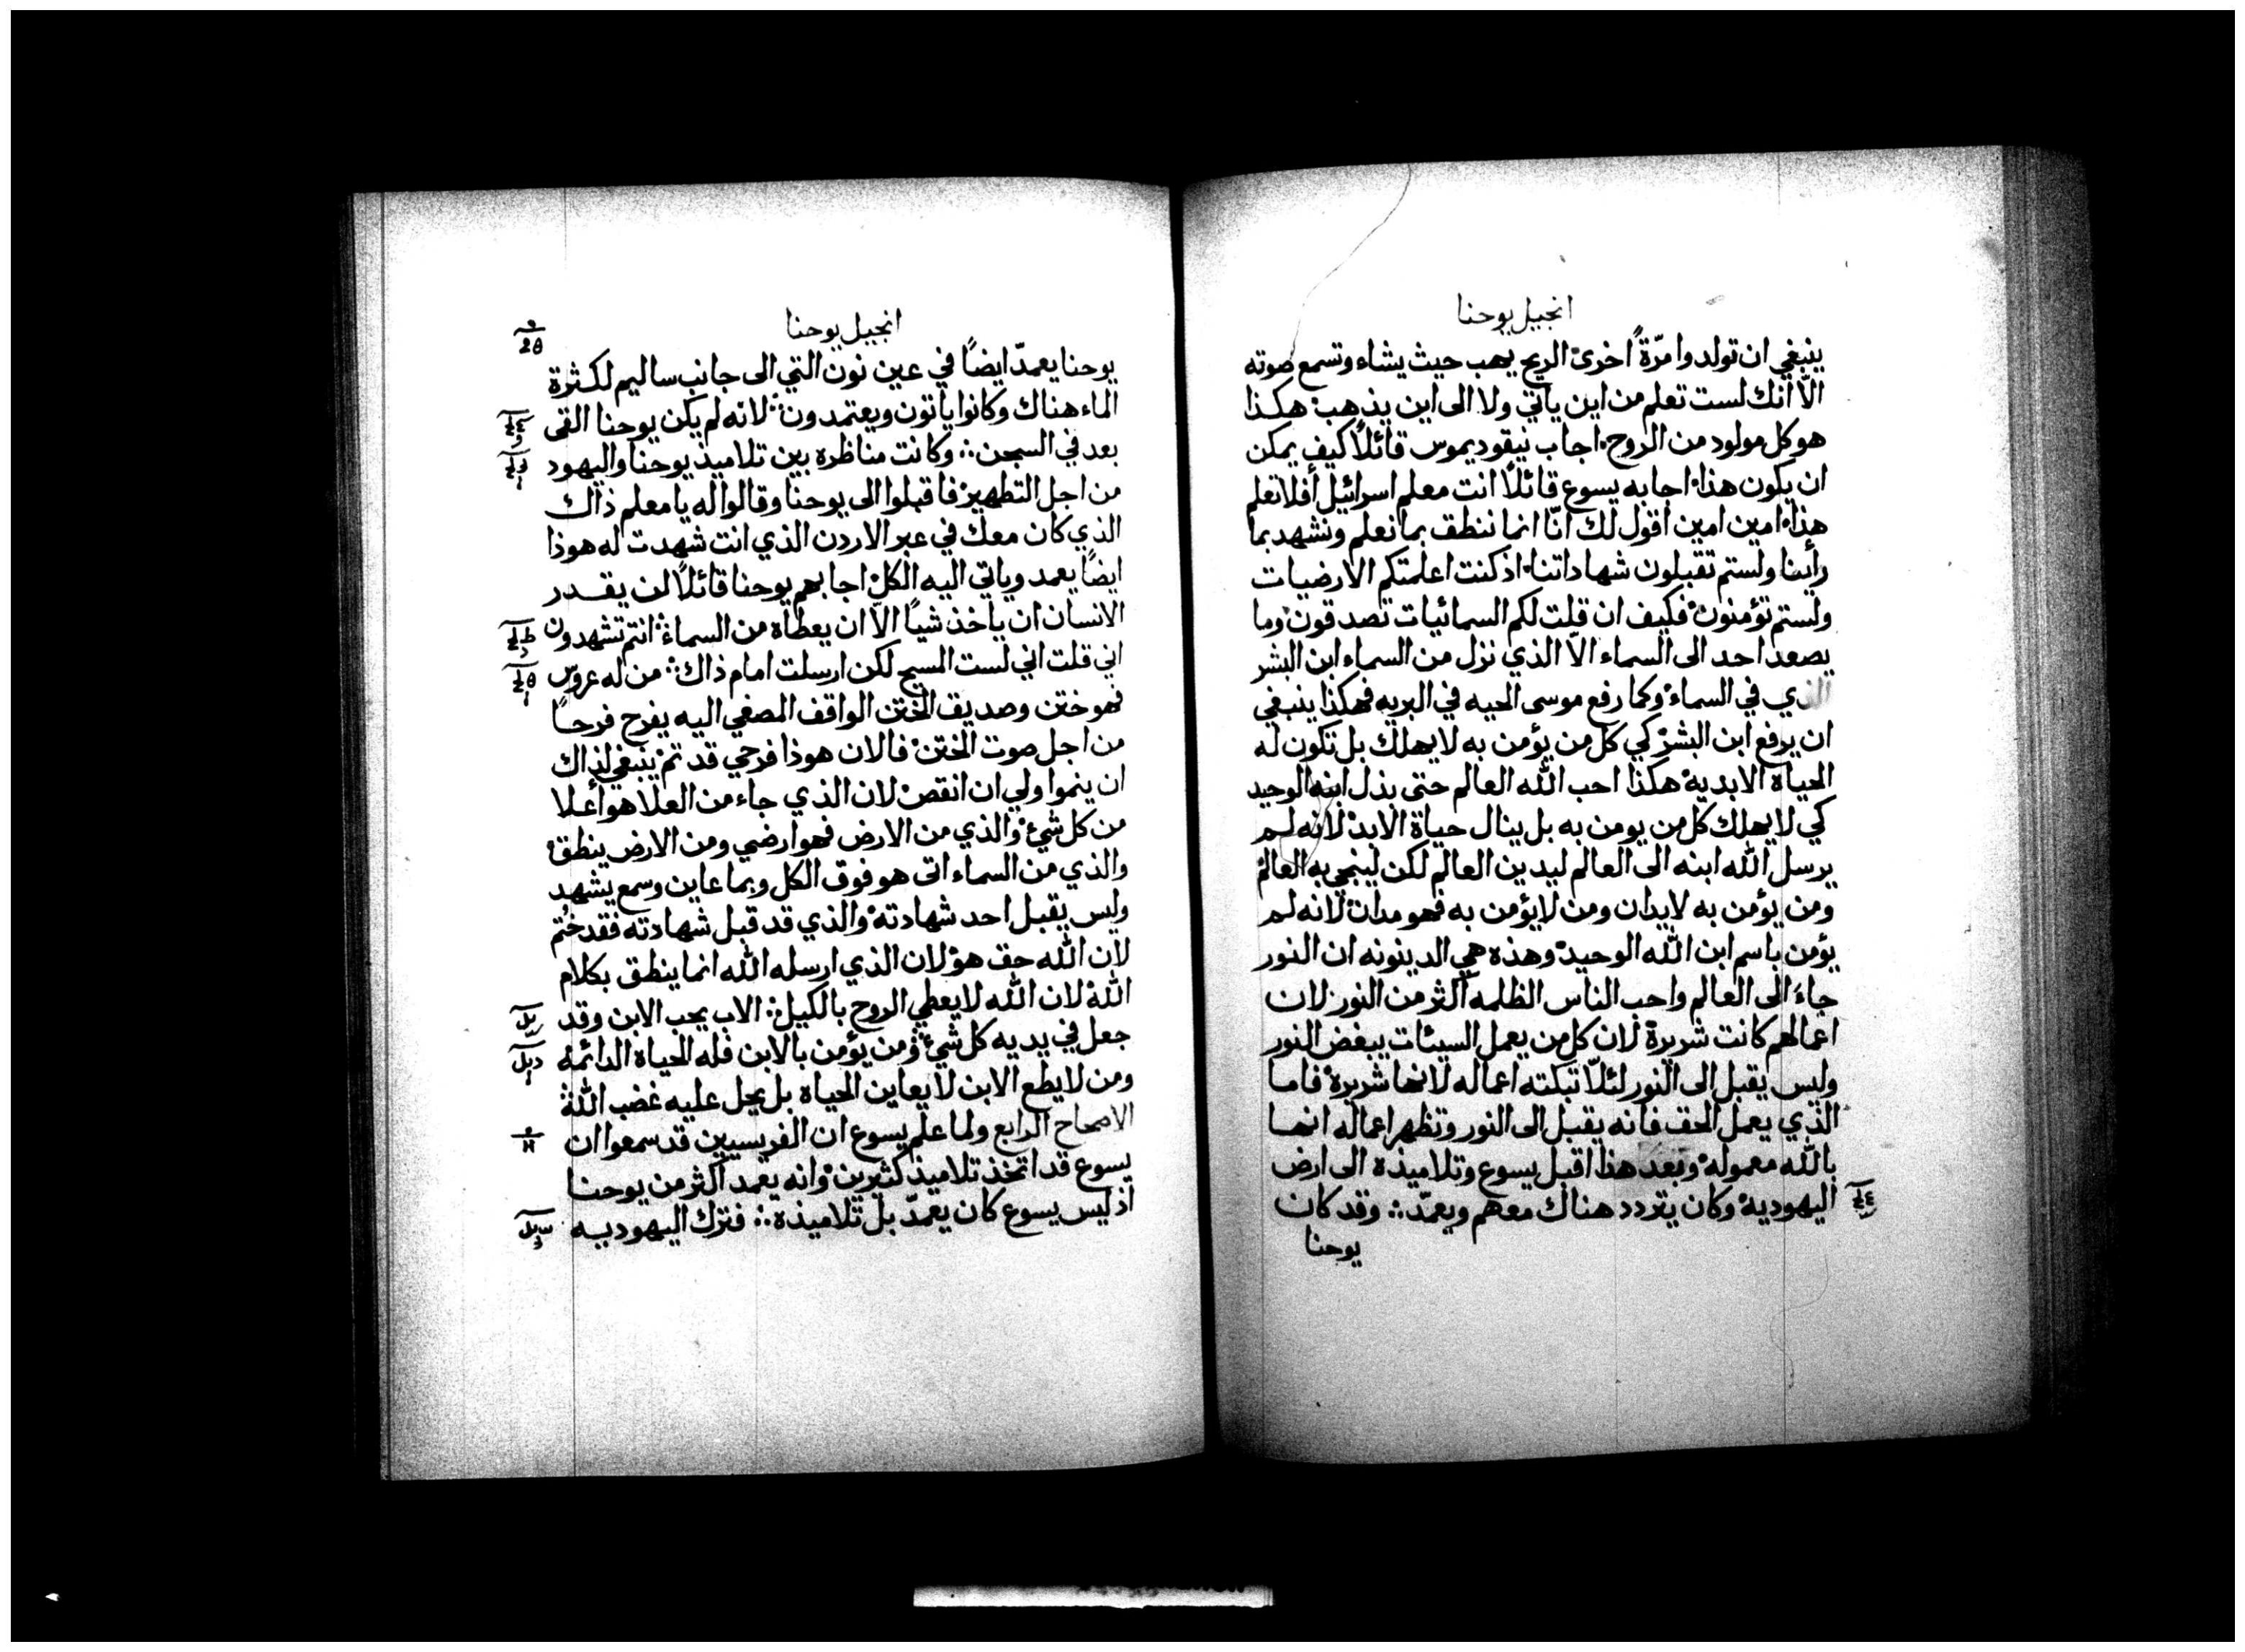 انجيل يوحنا
ينبغي ان تولدوا مرّةً اخرى الريح يهب حيث يشاء وتسمع صوته
الّا انك لست تعلم من اين ياتي ولا الى اين يذهب هكذا
هو كل مولود من الروح اجاب نيقوديموس قائلاً كيف يمكن
ان يكون هذا اجابه يسوع قائلاً انت معلم اسرائيل أفلا تعلم
هذا امين امين اقول لك انّا انما ننطق بما نعلم ونشهد بما
رأينا ولستم تقبلون شهاداتنا اذ كنت اعلمتكم الارضيات
ولستم تؤمنون فكيف ان قلت لكم السمائيات تصدقون وما
يصعد احد الى السماء الّا الذي نزل من السماء ابن البشر
الذي في السماء وكما رفع موسى الحيه في البريه فهكذا ينبغي
ان يرفع ابن البشر كي كل من يؤمن به لا يهلك بل تكون له
الحياة الابديه هكذا احب الله العالم حتى بذل ابنه الوحيد
كي لا يهلك كل من يومن به بل ينال حياة الابد لانه لم
يرسل الله ابنه الى العالم ليدين العالم لكن لينجي به العالم
ومن يؤمن به لا يدان ومن لا يؤمن به فهو مدان لانه لم
يؤمن باسم ابن الله الوحيد وهذه هي الدينونه ان النور
جاءَ الى العالم واحب الناس الظلمه اكثر من النور لان
اعمالهم كانت شريرة لان كل من يعمل السيئات يبغض النور
وليس يقبل الى النور لئلّا تبكته اعماله لانها شريرة فاما
الذي يعمل الحق فانه يقبل الى النور وتظهر اعماله انها
بالله معموله وبعد هذا اقبل يسوع وتلاميذه الى ارض
اليهوديه وكان يتردد هناك معهم ويعمّد ∴ وقد كان
يوحنا
انجيل يوحنا
يوحنا يعمدّ ايضاً في عين نون التي الى جانب ساليم لكثرة
الماء هناك وكانوا ياتون ويعتمدون ∴ لانه لم يكن يوحنا القى
بعد في السجن ∴ وكانت مناظره بين تلاميذ يوحنا واليهود
من اجل التطهير فاقبلوا الى يوحنا وقالوا له يا معلم ذاك
الذي كان معك في عبر الاردن الذي انت شهدت له هوذا
ايضاً يعمد وياتي اليه الكل اجابهم يوحنا قائلاً لن يقدر
الانسان ان ياخذ شياً الّا ان يعطاه من السماء ∴ انتم تشهدون
اني قلت اني لست المسيح لكن ارسلت امام ذاك ∴ من له عروس
فهو ختن وصديق الختن الواقف المصغي اليه يفرح فرحاً
من اجل صوت الختن فالان هوذا فرحي قد تم ينبغي لذاك
ان ينموا ولي ان انقص لان الذي جاء من العلا هو أعلا
من كل شيء والذي من الارض فهو ارضي ومن الارض ينطق
والذي من السماء اتى هو فوق الكل وبما عاين وسمع يشهد
وليس يقبل احد شهادته والذي قد قبل شهادته فقد ختم
لان الله حق هو لان الذي ارسله الله انما ينطق بكلام
الله لان الله لا يعطي الروح بالكيل ∴ الاب يحب الابن وقد
جعل في يديه كل شيء ومن يؤمن بالابن فله الحياة الدائمة
ومن لا يطع الابن لا يعاين الحياة بل يحل عليه غضب الله
الاصحاح الرابع ولما علم يسوع ان الفريسيين قد سمعوا ان
يسوع قد اتخذ تلاميذ كثيرين وانه يعمد اكثر من يوحنا
اذ ليس يسوع كان يعمدّ بل تلاميذه ∴ فترك اليهوديه